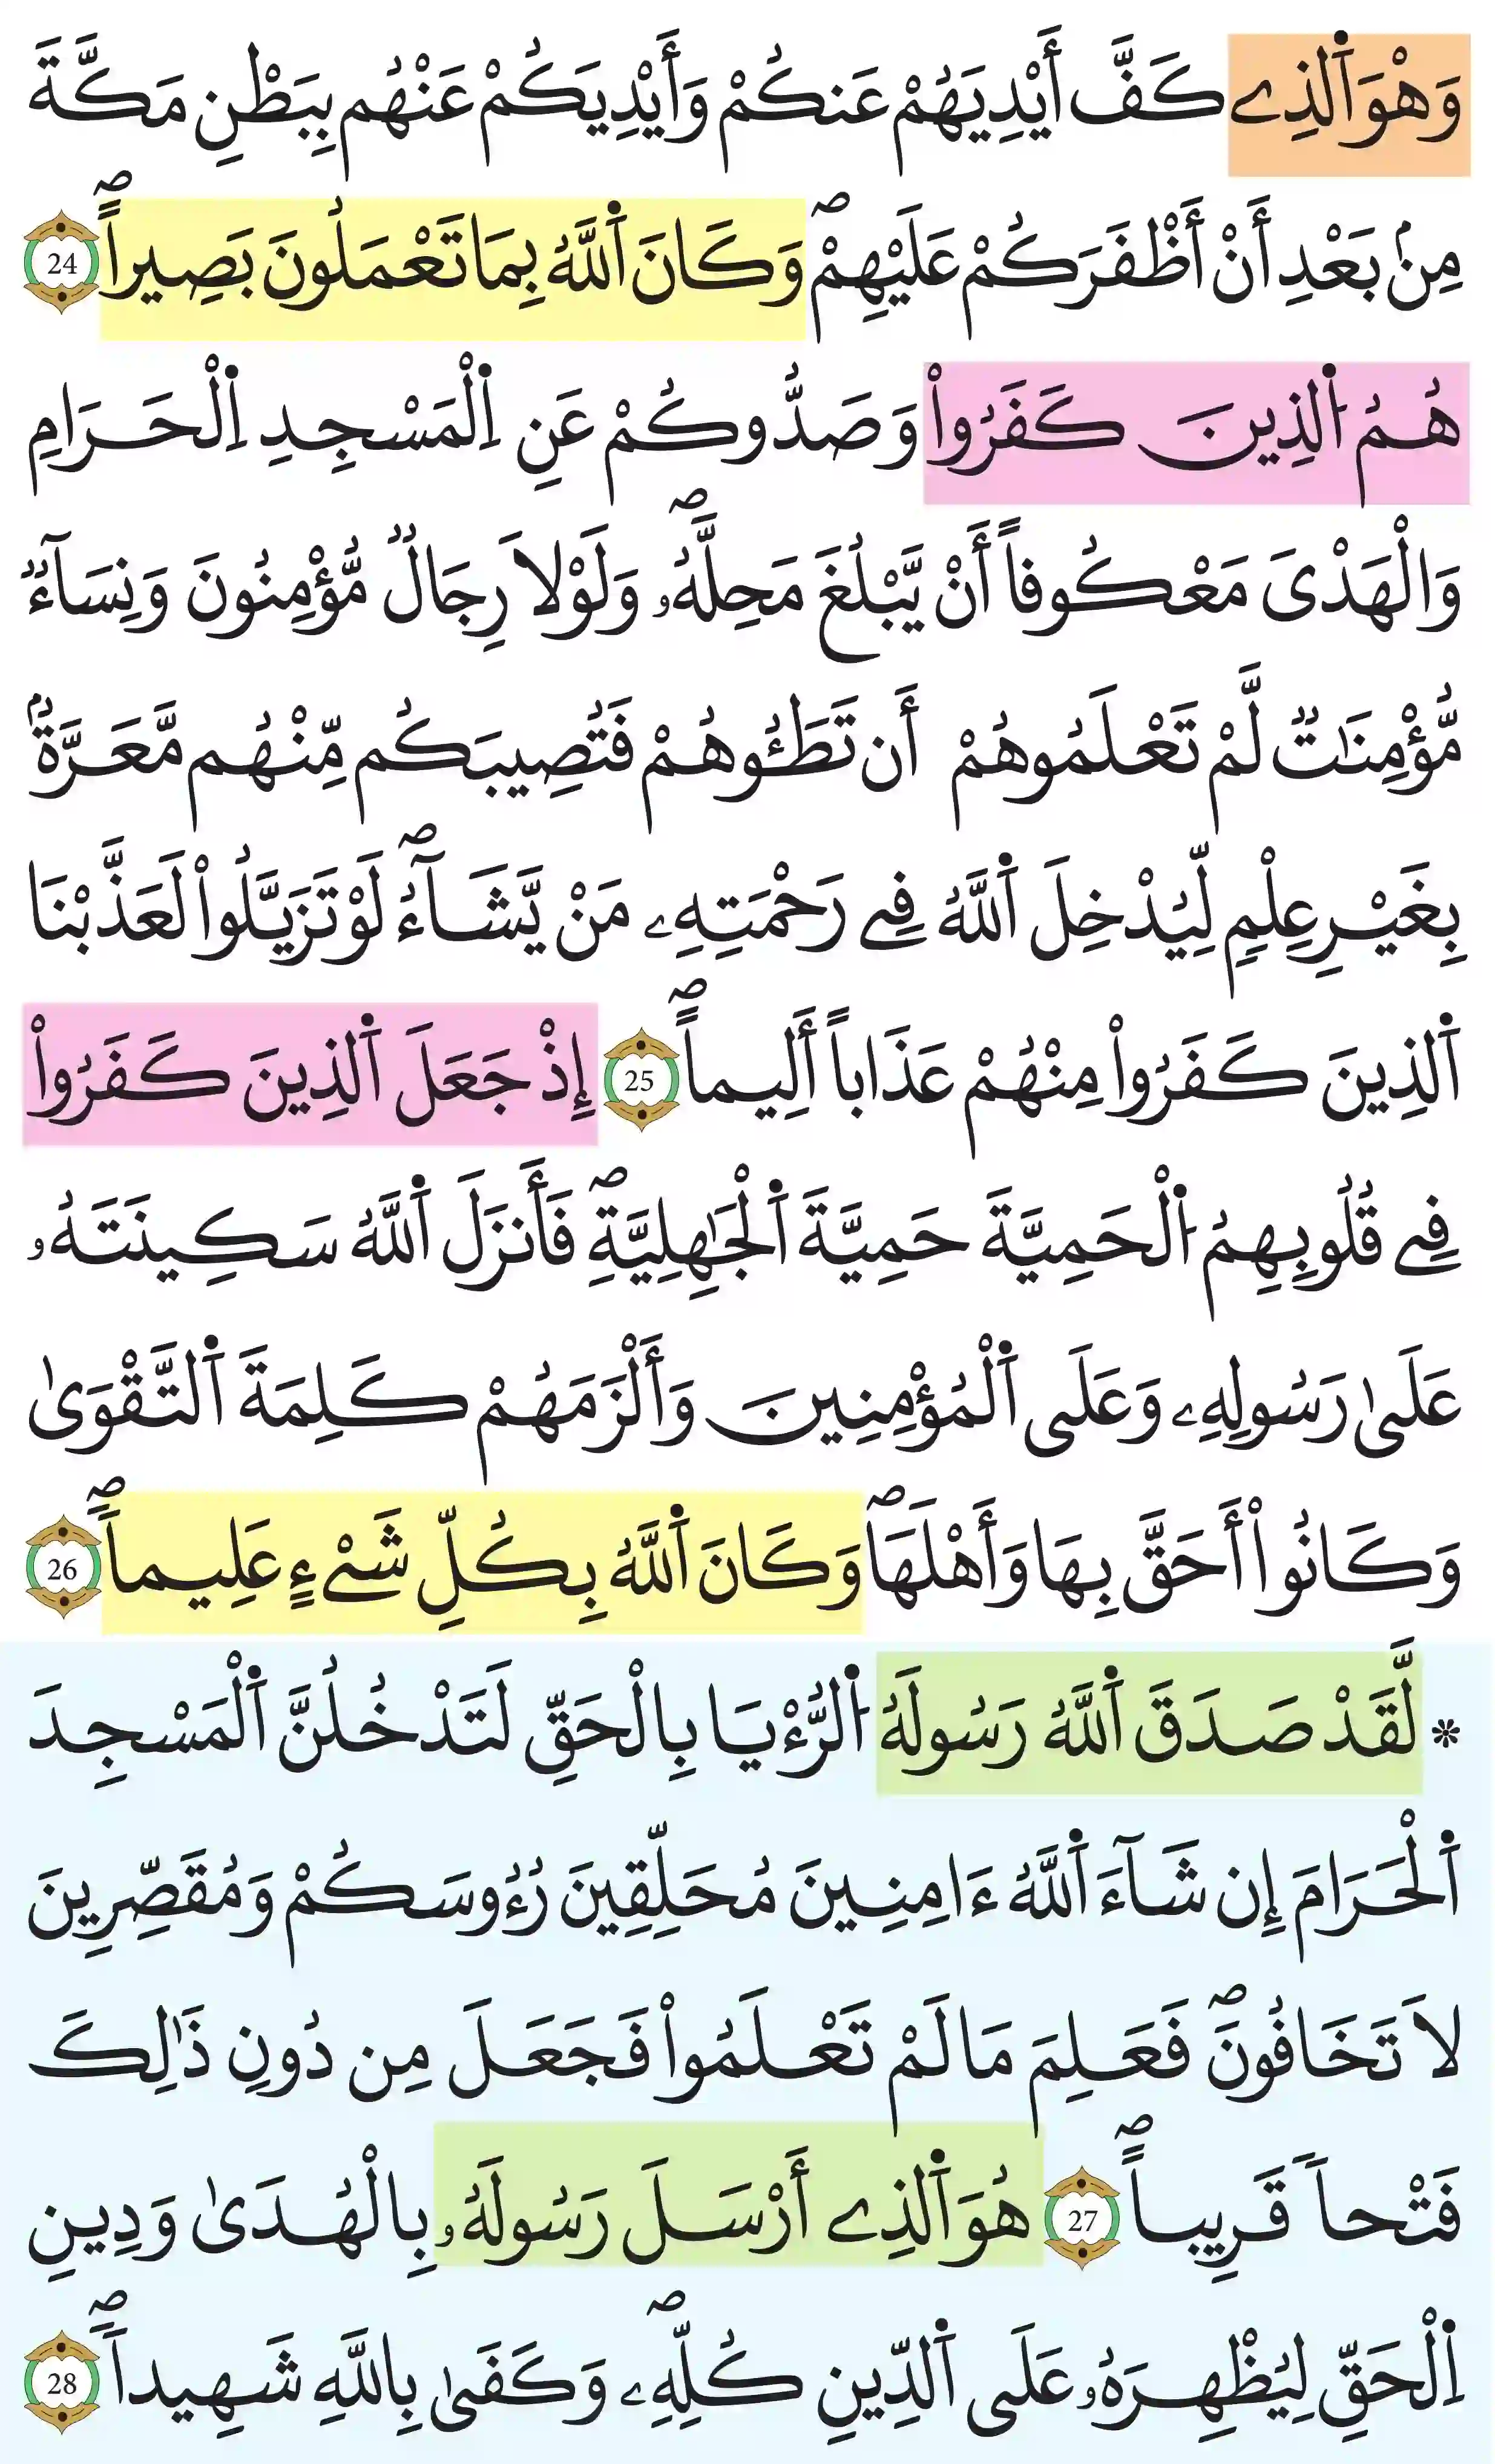 وَهْوَ اَ۬لذِے كَفَّ أَيْدِيَهُمْ عَنكُمْ وَأَيْدِيَكُمْ عَنْهُم بِبَطْنِ مَكَّةَ
مِنۢ بَعْدِ أَنْ أَظْفَرَكُمْ عَلَيْهِمْۖ وَكَانَ اَ۬للَّهُ بِمَا تَعْمَلُونَ بَصِيراًۖ 24
هُمُ اُ۬لذِينَ كَفَرُواْ وَصَدُّوكُمْ عَنِ اِ۬لْمَسْجِدِ اِ۬لْحَرَامِ
وَالْهَدْيَ مَعْكُوفاً أَنْ يَّبْلُغَ مَحِلَّهُۥۖ وَلَوْلَا رِجَالٞ مُّؤْمِنُونَ وَنِسَآءٞ
مُّؤْمِنَٰتٞ لَّمْ تَعْلَمُوهُمْ أَن تَطَـُٔوهُمْ فَتُصِيبَكُم مِّنْهُم مَّعَرَّةُۢ
بِغَيْرِ عِلْمٖ لِّيُدْخِلَ اَ۬للَّهُ فِے رَحْمَتِهِۦ مَنْ يَّشَآءُۖ لَوْ تَزَيَّلُواْ لَعَذَّبْنَا
اَ۬لذِينَ كَفَرُواْ مِنْهُمْ عَذَاباً أَلِيماًۖ 25 إِذْ جَعَلَ اَ۬لذِينَ كَفَرُواْ
فِے قُلُوبِهِمُ اُ۬لْحَمِيَّةَ حَمِيَّةَ اَ۬لْجَٰهِلِيَّةِۖ فَأَنزَلَ اَ۬للَّهُ سَكِينَتَهُۥ
عَلَىٰ رَسُولِهِۦ وَعَلَى اَ۬لْمُؤْمِنِينَ وَأَلْزَمَهُمْ كَلِمَةَ اَ۬لتَّقْوَىٰ
وَكَانُواْ أَحَقَّ بِهَا وَأَهْلَهَاۖ وَكَانَ اَ۬للَّهُ بِكُلِّ شَےْءٍ عَلِيماًۖ 26
* لَّقَدْ صَدَقَ اَ۬للَّهُ رَسُولَهُ اُ۬لرُّءْيَا بِالْحَقِّ لَتَدْخُلُنَّ اَ۬لْمَسْجِدَ
اَ۬لْحَرَامَ إِن شَآءَ اَ۬للَّهُ ءَامِنِينَ مُحَلِّقِينَ رُءُوسَكُمْ وَمُقَصِّرِينَ
لَا تَخَافُونَۖ فَعَلِمَ مَا لَمْ تَعْلَمُواْ فَجَعَلَ مِن دُونِ ذَٰلِكَ
فَتْحاٗ قَرِيباًۖ 27 هُوَ اَ۬لذِے أَرْسَلَ رَسُولَهُۥ بِالْهُدَىٰ وَدِينِ
اِ۬لْحَقِّ لِيُظْهِرَهُۥ عَلَى اَ۬لدِّينِ كُلِّهِۦۖ وَكَفَىٰ بِاللَّهِ شَهِيداٗۖ 28